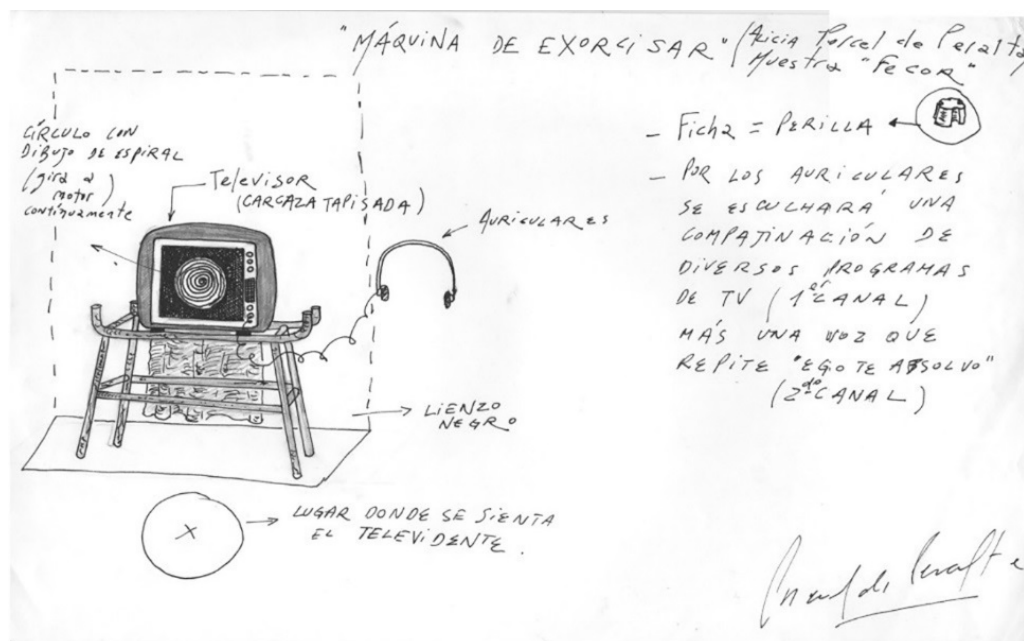 "MÁQUINA DE EXORCISAR" (Alicia Porcel de Peralta)
Muestra "FECOR"
CÍRCULO CON
DIBUJO DE ESPIRAL
(gira a
motor)
continuamente
Televisor
(CARCAZA TAPISADA)
AURICULARES
LIENZO
NEGRO
LUGAR DONDE SE SIENTA
EL TELEVIDENTE.
X
- Ficha = PERILLA
- POR LOS AURICULARES
SE ESCUCHARÁ UNA
COMPAJINACIÓN DE
DIVERSOS PROGRAMAS
DE TV (1er CANAL)
MÁS UNA VOZ QUE
REPITE "EGO TE ABSOLVO"
(2do CANAL)
Porcel de Peralta